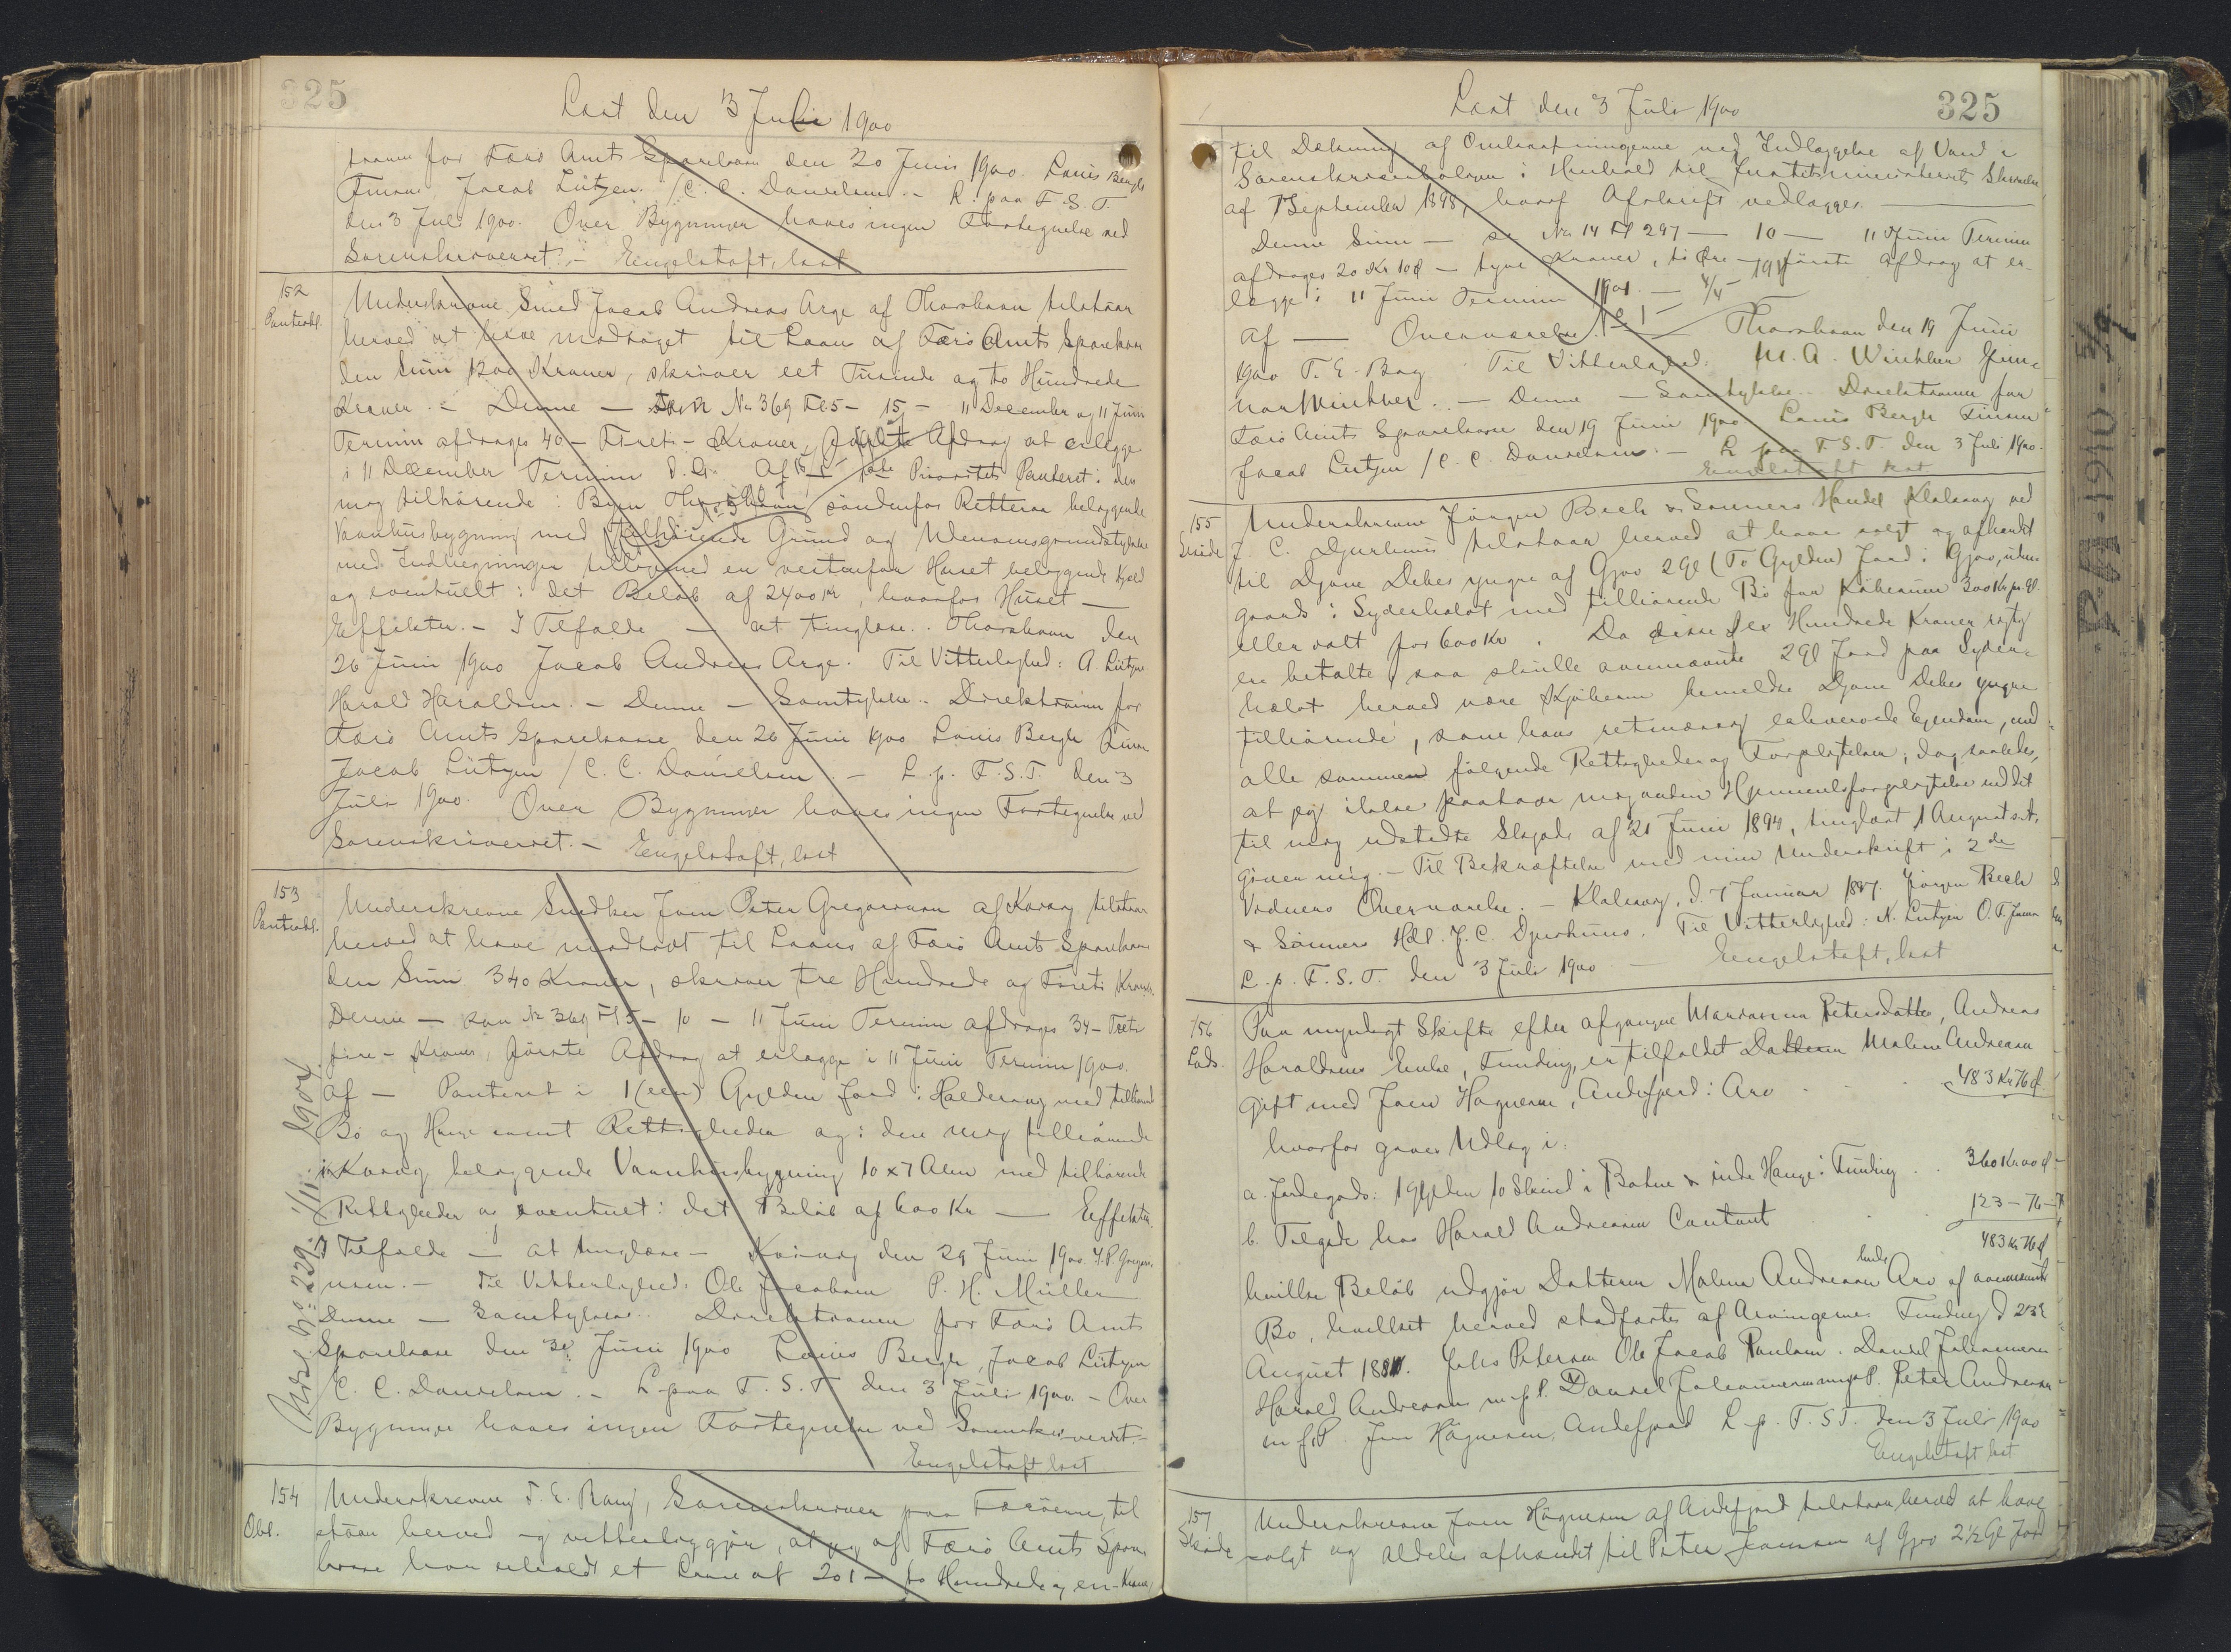 325
Læst den 3 Juli 1900
for Færø Amts Sparekasse den 20 Juni 1900. Louis Bergh
Finsen Jacob Lützen. / C. C. Danielsen. - L. paa F. S. T.
den 3 Juli 1900. Over Bygninger haves ingen Fortegnelse ved
Sorenskriveriet. - Eengelstoft, læst
152
Panteobl.
Underskrevne Smed Jacob Andreas Arge af Thorshavn tilstaar
herved at have modtaget til Laan af Færø Amts Sparekasse
den Sum 1200 Kroner, skriver eet Tusinde og to Hundrede
Kroner. - Denne - som No 369 Fl 5 - 15 - 11 December og 11 Juni
Termin afdrages 40 - Fireti - Kroner, første Afdrag at erlægge
i 11 December Termin d. A. Af - 1ste Prioritets Panteret i den
mig tilhørende i Byen Thorshavn søndenfor Retteraa beliggende
Vaanhusbygning med tilhørende Grund og Udenomsgrundstykke
med Indhegninger tilligemed en vestenfor Huset beliggende Kjeld
og eventuelt i det Beløb af 2400 Kr, hvorfor Huset -
Effekter. - I Tilfælde - at tinglæse. Thorshavn den
26 Juni 1900 Jacob Andreas Arge. Til Vitterlighed: A. Lützen
Harald Haraldsen. - Denne - Samtykke. Direktionen for
Færø Amts Sparekasse den 26 Juni 1900 Louis Bergh Finsen
Jacob Lützen / C. C. Danielsen. - L. p. F. S. T. den 3
Juli 1900. Over Bygninger haves ingen Fortegnelse ved
Sorenskriveriet. - Eengelstoft, læst
153
Panteobl.
Underskrevne Snedker Joen Peter Gregoriusen af Kvivig tilstaar
herved at have modtaget til Laans af Færø Amts Sparekasse
den Sum 340 Kroner, skriver tre Hundrede og Fireti Kroner.
Denne - som No 369 Fl 5 - 10 - 11 Juni Termin afdrages 34 - Treti
fire - Kroner, første Afdrag at erlægge i 11 Juni Termin 1900.
Af - Panteret i 1 (een) Gylden Jord i Haldersvig med tilliende
Bø og Hauge samt Rettigheder og i den mig tilhørende
i Kvivig beliggende Vaanhusbygning 10 x 7 Alen med tilhørende
Rettigheder og eventuelt i det Beløb af 600 Kr - Effekter.
I Tilfælde - at tinglæse - Kvivig den 29 Juni 1900 J. P. Gregoriu-
usen. - Til Vitterlighed: Ole Jacobsen P. H. Müller
Denne - Samtykke. Direktionen for Færø Amts
Sparekasse den 30 Juni 1900 Louis Bergh, Jacob Lützen
C. C. Danielsen. - L. paa F. S. T. den 3 Juli 1900. - Over
Bygninger haves ingen Fortegnelse ved Sorenskriveriet. -
Eengelstoft læst
154
Obl.
Underskrevne T. E. Bang, Sorenskriver paa Færøerne, til-
staar herved og vitterliggjør, at jeg af Færø Amts Spare-
kasse har erholdt et Laan af 201 - to Hundrede og en - Kroner
325
Læst den 3 Juli 1900
til Dækning af Omkostningerne ved Indlæggelse af Vand i
Sorenskriverboligen i Henhold til Justitsministeriets Skrivelse
af 7 September 1898, hvoraf Afskrift vedlægges. -
Denne Sum - se No 14 Fl 297 - 10 - 11 Juni Termin
afdrages 20 Kr 10 Ø - tyve Kroner, ti Øre - første Afdrag at er-
lægge i 11 Juni Termin 1901. -
af - Overværelse. - Thorshavn den 19 Juni
1900 T. E. Bang Til Vitterlighed: M. A. Winther
Winther. - Denne - Samtykke. Direktionen for
Færø Amts Sparekasse den 19 Juni 1900 Louis Bergh Finsen
Jacob Lützen / C. C. Danielsen. - L. paa F. S. T. den 3 Juli 1900.
Eengelstoft læst
155
Skøde
Underskrevne Jørgen Bech & Sønners Handel Klaksvig ved
J. C. Djurhuus tilstaar herved at have solgt og afhændet
til Djone Debes yngre af Gjov 2 Gl (To Gylden) Jord i Gjov, uden
gaards i Syderhalot med tilliende Bø for Købesum 300 Kr pr. Gl.
eller ialt for 600 Kr. Da disse Sex Hundrede Kroner rigtig
ere betalte, saa skulle ovennævnte 2 Gl Jord paa Syder-
halot herved være Kjøberen bemeldte Djone Debes yngre
tilhørende, som hans retmæssig erhvervede Ejendom, med
alle sammen følgende Rettigheder og Forpligtelser, dog saaledes,
at jeg ikke paatager mig anden Hjemmelsforpligtelse end det
til mig udstedte Skjøde af 21 Juni 1894, tinglæst 1 August s. A.
giver mig. - Til Bekræftelse med min Underskrift i 2de
Vidners Overværelse. - Klaksvig, d. 7 Januar 1897. Jørgen Bech
& Sønners Hdl. J. C. Djurhuus. Til Vitterlighed: N. Lützen O. F. Joensen
L. p. F. S. T. den 3 Juli 1900 - Eengelstoft, læst
156
Uds.
Paa myndigt Skifte efter afgangne Petersdatter, Andreas
Haraldsens Enke, Funding, er tilfaldet Datteren Malene Andreasen
gift med Joen Høgnesen, Andefjord: Arv 483 Kr 76 Ø
hvorfor gives Udlæg i:
a. Jordegods: 1 Gylden 10 Skind i Bøhne & inde Hauge i Funding . . 360 Kr 00 Ø
b. Tilgode hos Harald Andreasen Contant 123 - 76 -
483 Kr 76 Ø
hvilket Beløb udgjør Datteren Malene Andreasen hele Arv af ovennævnte
Bo, hvilket herved stadfæstes af Arvingerne. Funding d 23
August 188. Johs Petersen Ole Jacob Poulsen. Daniel Johannesen
Harald Andreasen m. f. P. Daniel Johannesen m. f. P. Peter Andreasen
m f. P. Joen Høgnesen, Andefjord L. p. F. S. T. den 3 Juli 1900
Eengelstoft læst
157
Skøde
Underskrevne Joen Høgnesen af Andefjord tilstaar herved at have
solgt og aldeles afhændet til Peter Joensen af Gjov 2½ Gl Jord